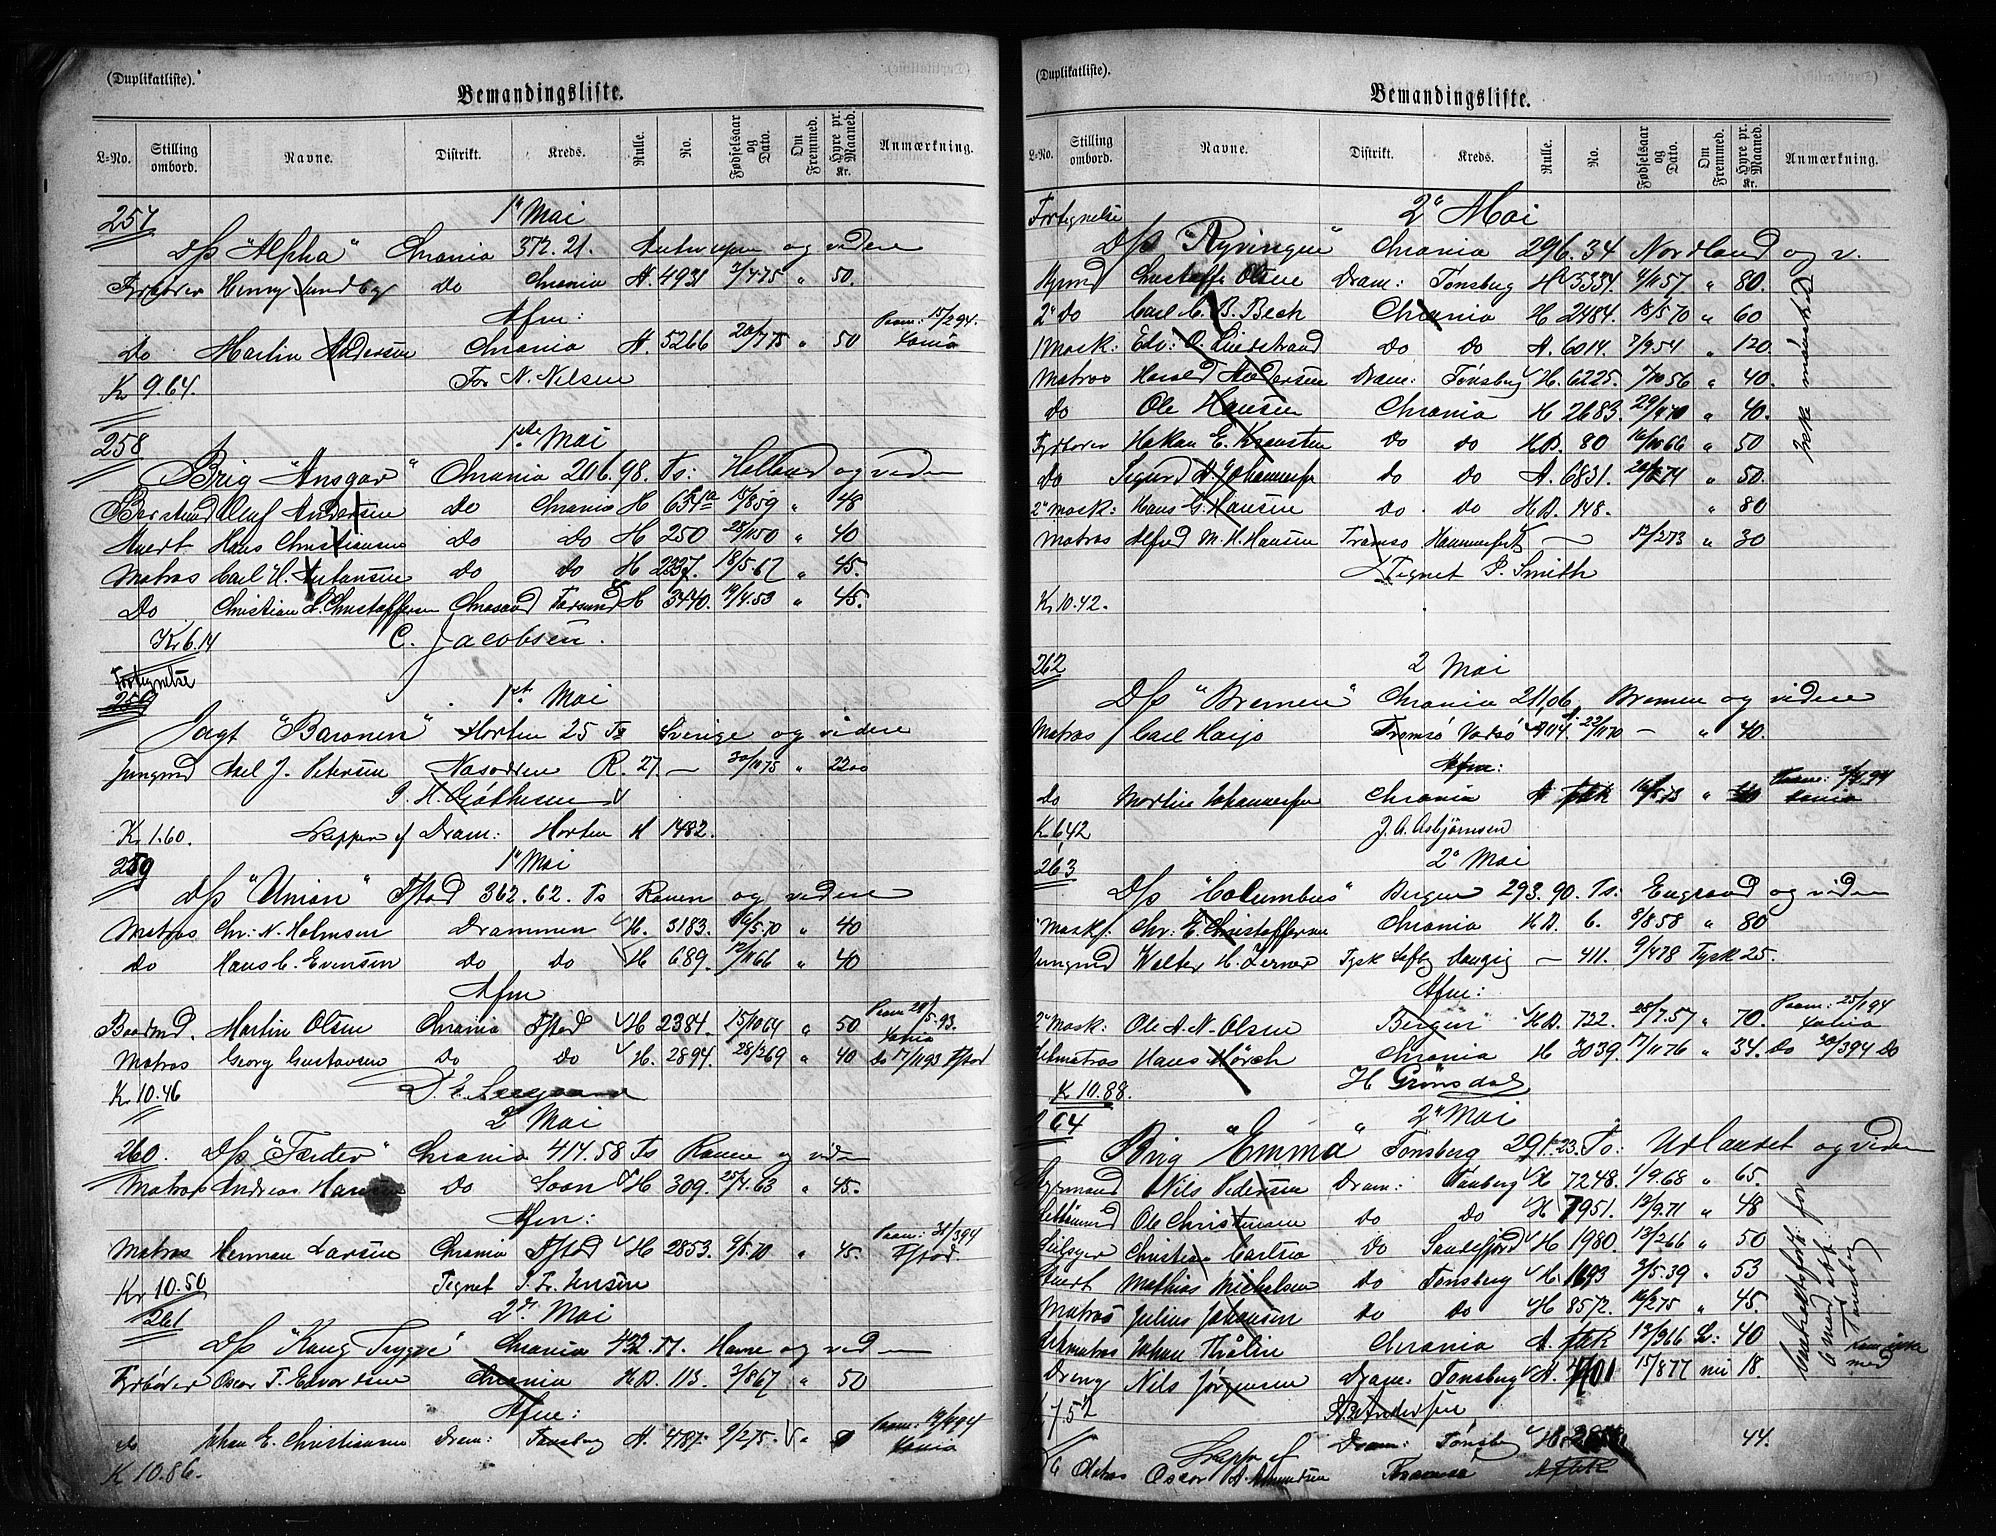 (Duplikatliste).
Bemandingsliste.
L-No. Stilling ombord. Navne. Distrikt. Kreds. Rulle. No. Fødselsaar og Dato. Om Fremmed. Hyre pr. Maaned. Kr. Anmærkning.
257 1' Mai
D/s "Alpha" Chrania 372.21. Antwerpen og videre
Fyrbøder Henry Lundby Do Chrania A. 4931 2/4 75 " 50.
Afm:
Do Martin Andersen Chrania A. 5266 20/7 75 " 50 Paam: 15/2 94. Xania
Kr 9.64. For N. Nilsen
258 1ste Mai
Brig "Ansgar" Chrania 206.98. Ts: Holland og videre
Bestmd Oluf Andersen Do Chrania H 651a 15/8 59 " 48
Stuert Hans Christiansen Do Do H 250 28/11 50 " 40
Matros Carl H. Do Do H 2237. 18/5 67 " 45.
Do Christian L. Christoffersen Chrsand Farsund H 3440. 19/4 53 " 45.
Kr 6.14 C. Jacobsen.
Fortegnelse
259 1ste Mai
Jagt "Baronen" Horten 25 Ts Sverige og videre
Jungmd Axel J. Petersen Nasodden R. 27 — 30/11 75 " 22 00
Kr 1.60. Skipper if Dram: Horten H 1482.
259 1' Mai
D/s "Union" Fstad 362.62. Ts Rouen og videre
Matros Chr: N. Holmsen Drammen H. 3183. 16/5 70 " 40
do Hans C. Evensen Do Do H 689. 12/11 66 " 40
Afm
Baadmd. Martin Olsen Chrania Fstad H 2384. 15/10 64 " 50 Paam 20/5 93. Xania
Matros Georg Gustavsen Do Do H. 2894. 28/2 69 " 40 Do 17/11 93 Fstad
Kr 10.46
2' Mai
260. D/s "Færder" Chrania 414.58 Ts Rouen og viden
Matros Andreas Hansen Do Soon H 309. 25/4 63 " 45.
Afm:
Matros Herman Larsen Chrania Fstad H 2853. 9/8 70 " 45. Paam: 31/3 94 Fstad.
Kr 10.50 Tegnet
261 2den Mai
D/s "Kong Trygve" Chrania 432.77. Havre og viden
Fyrbøder Oscar T. Edvardsen Chrania H.D. 113. 2/8 67 " 50
Afm:
do Johan E. Christiansen Dram: Tønsberg A. 4787 9/2 75. " Paam: 19/4 94 Xania
Kr 10.86.
(Duplikatliste).
Bemandingsliste.
L-No. Stilling ombord. Navne. Distrikt. Kreds. Rulle. No. Fødselsaar og Dato. Om Fremmed. Hyre pr. Maaned. Kr. Anmærkning.
Fortegnelse 2' Mai
D/s "Ryvingen" Chrania 296.34 Nordland og v.
Styrmd Christoffer Olsen Dram: Tønsberg H 3334. 4/11 57 " 80.
2' Do Carl C. B. Bech Chrania H 2484. 18/5 70 " 60
1 Mask: Edv: O. Lindstrand Do Do A. 6014. 7/9 54 " 120.
Matros Harald Andersen Dram: Tønsberg H. 6225. 7/10 56 " 40.
do Ole Hansen Chrania H 2683. 29/4 70 " 40.
Fyrbøder Hakan E. Kransten Do do H.D. 80 16/10 66 " 50
do Sigurd A. Johannesen do Do A. 6831. 20/2 74 " 50.
2' Mask: Hans G. Hansen do do H.D. 148. " 80
Matros Alfred M. H. Hansen Tromsø Hammerfest — 12/2 73 " 30
Ikke mønstret
Tegnet P. Smith
Kr 10.42.
262 2 Mai
D/s "Bremen" Chrania 211.06. Bremen og videre
Matros Carl Tromsø Vadsø A 104 22/11 70 — " 40.
Afm:
do Martin Johannesen Chrania A 16/5 73 " 40 Xania
Kr 6.42 J. A. Asbjørnsen
263 2' Mai
D/s "Columbus" Bergen 293.90. Ts: England og viden
Mask: Chr: E. Christoffersen Chrania H.D. 6. 8/8 58 " 80
Jungmd Walter H. Zerner Tysk Danzig — 411. 9/4 78 Tysk 25.
Afm:
2' Mask: Ole A. N. Olsen Bergen H.D. 722. 28/7.57 " 70. Paam: 25/1 94 Xania
Letmatros Hans Hørch Chrania H 3039. 17/11 76 " 34. Do 20/3 94 Do
Kr 10.88. H Grønsdal
264 2' Mai
Brig "Emma" Tønsberg 291.23. Ts: Udlandet og viden
Styrmand Nils Pedersen Dram: Tønsberg H 7248. 1/9.68 " 65.
Ole Christensen Do Do H 7951. 13/9.71 " 48
Christian Carlsen Do Sandefjord H 1980. 13/2 66 " 50
Stuert Mathias Michelsen Do Tønsberg H. 1693 2/5.39 " 53
Matros Julius Johansen do Do H 8572. 16/2 75 " 45.
Letmatros Johan Thålin Chrania A. 13/9 66 L: 40
Dreng Nils Jørgensen Dram: Tønsberg A. 15/8 77 nei 18.
7.52 A. Andersen
Skipper if Dram: Tønsberg H 44.
Matros Oscar A. Amundsen Tromsø